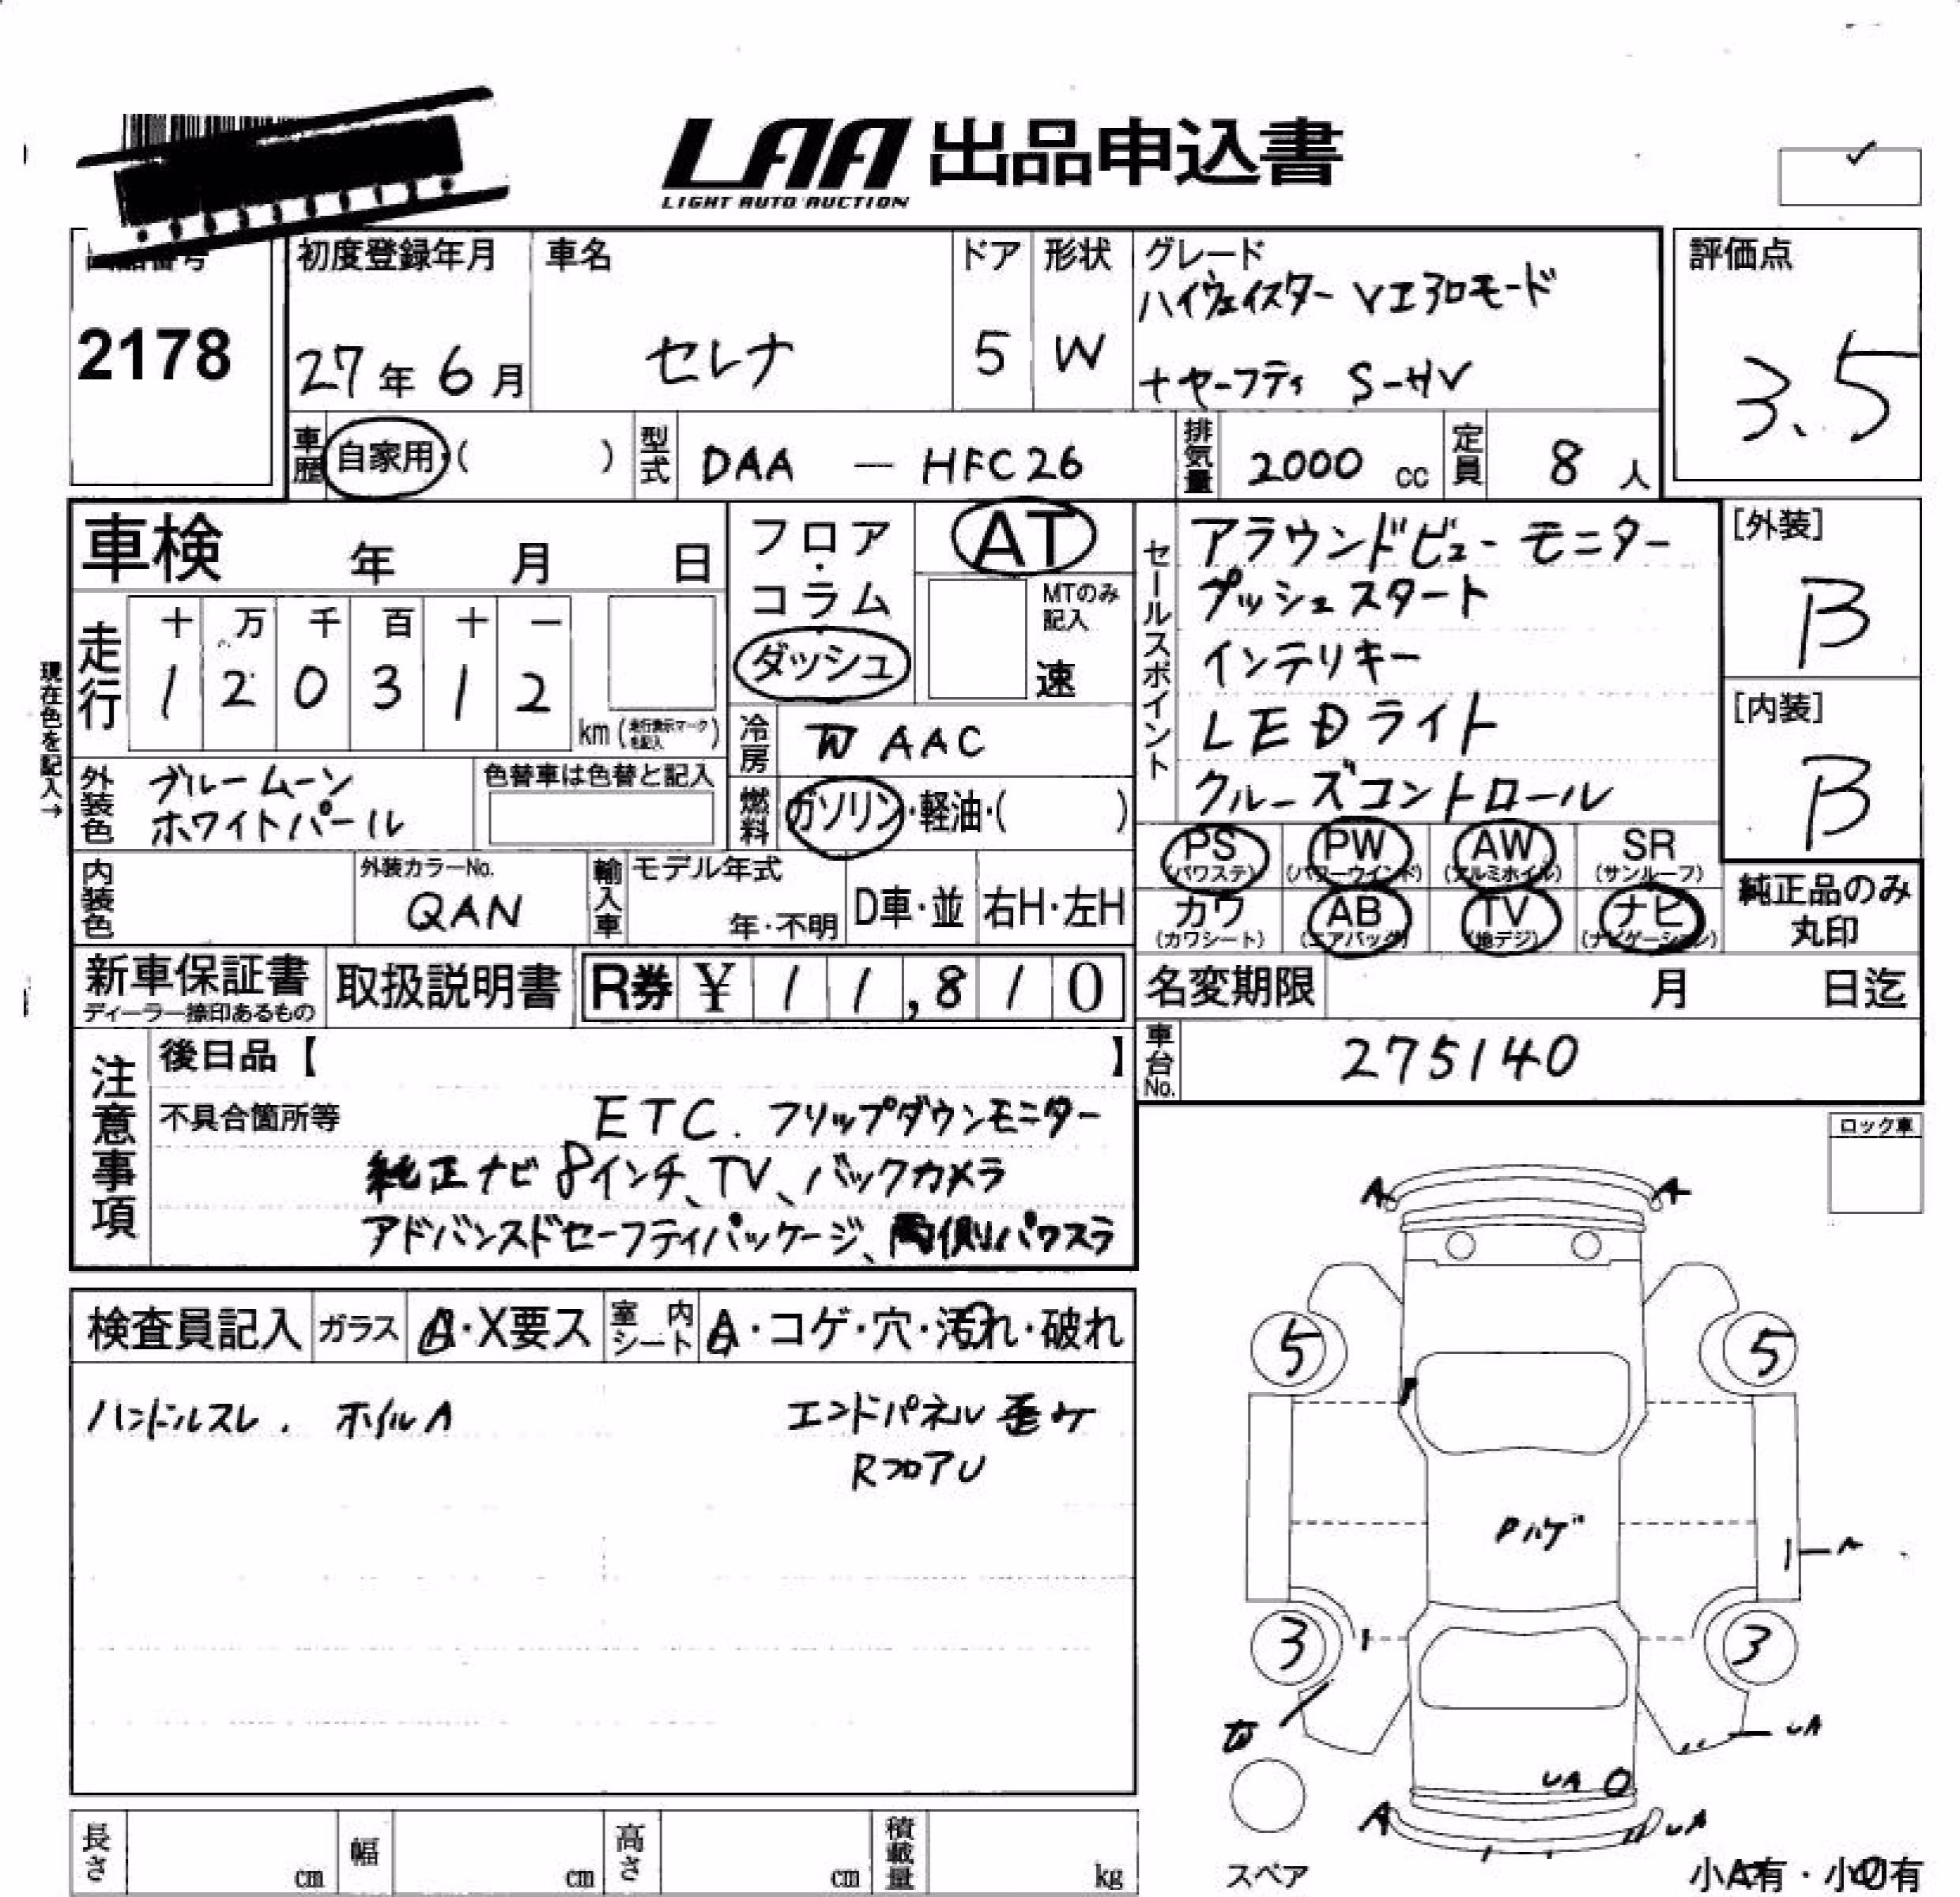 LAA 出品申込書
LIGHT AUTO AUCTION
2178
初度登録年月 車名 ドア 形状 グレード 評価点
27年6月 セレナ 5 W ハイウェイスター VエアロモードB
+セーフティ S-HV
3.5
車歴 自家用・( ) 型式 DAA — HFC26 排気量 2000 cc 定員 8 人
車検 年 月 日
フロア・コラム・ダッシュ
AT
MTのみ記入
速
セールスポイント
アラウンドビューモニター
プッシュスタート
インテリキー
LEDライト
クルーズコントロール
[外装]
B
[内装]
B
現在色を記入→
走行 十 万 千 百 十 一
1 2 0 3 1 2 km (走行表示マークを記入)
冷房 W AAC
外装色 ブルームーン
ホワイトパール
色替車は色替と記入
燃料 ガソリン・軽油・( )
PS (パワステ) PW (パワーウインド) AW (アルミホイル) SR (サンルーフ)
カワ (カワシート) AB (エアバッグ) TV (地デジ) ナビ (ナビゲーション)
純正品のみ
丸印
内装色 外装カラーNo. QAN 輸入車 モデル年式 年・不明 D車・並 右H・左H
新車保証書
ディーラー捺印あるもの
取扱説明書 R券 ¥ 11,810 名変期限 月 日迄
車台No. 275140
注意事項
後日品【 】
不具合箇所等 ETC. フリップダウンモニター
純正ナビ 8インチ、TV、バックカメラ
アドバンスドセーフティパッケージ、両側パワスラ
ロック車
検査員記入 ガラス A・X要ス 室内シート A・コゲ・穴・汚れ・破れ
ハンドルスレ. ホイルA エンドパネル歪ケ
RフロアU
A A
5 5
Pハゲ
A
3 3
UA
UA
A UA
スペア
小A有・小U有
長さ cm 幅 cm 高さ cm 積載量 kg